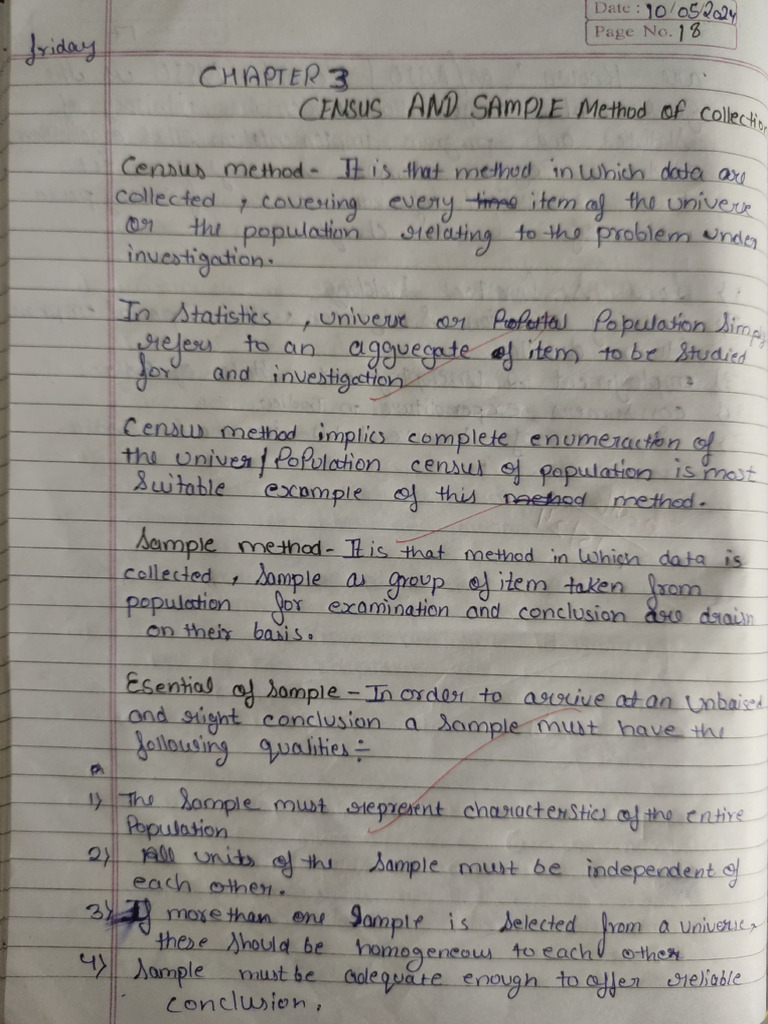 Date : 10/05/2024
Page No. 18
friday
CHAPTER 3
CENSUS AND SAMPLE Method of collection
Census method - It is that method in which data are
collected , covering every time item of the univerx
or the population relating to the problem under
investigation.
In Statistics , univerx or Population Simply
refers to an agguegate of item to be Studied
for and investigation
Census method implics complete enumeraction of
the univer/Population census of population is most
Suitable example of this method method.
Sample method - It is that method in Which data is
collected , Sample as group of item taken from
population for examination and conclusion are drain
on their basis.
Esential of Sample - In order to arrive at an Unbaised
and right conclusion a Sample must have the
following qualities :-
1) The Sample must represent characterstics of the entire
Population
2) All units of the Sample must be independent of
each other.
3) If more than one Sample is Selected from a universe,
these Should be homogeneous to each other
4) Sample must be adequate enough to offer reliable
conclusion.